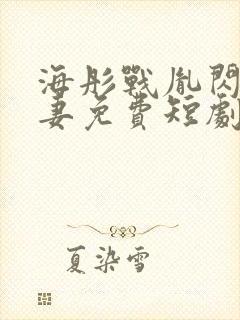 海彤戰胤閃
妻免費短劇
夏染雪